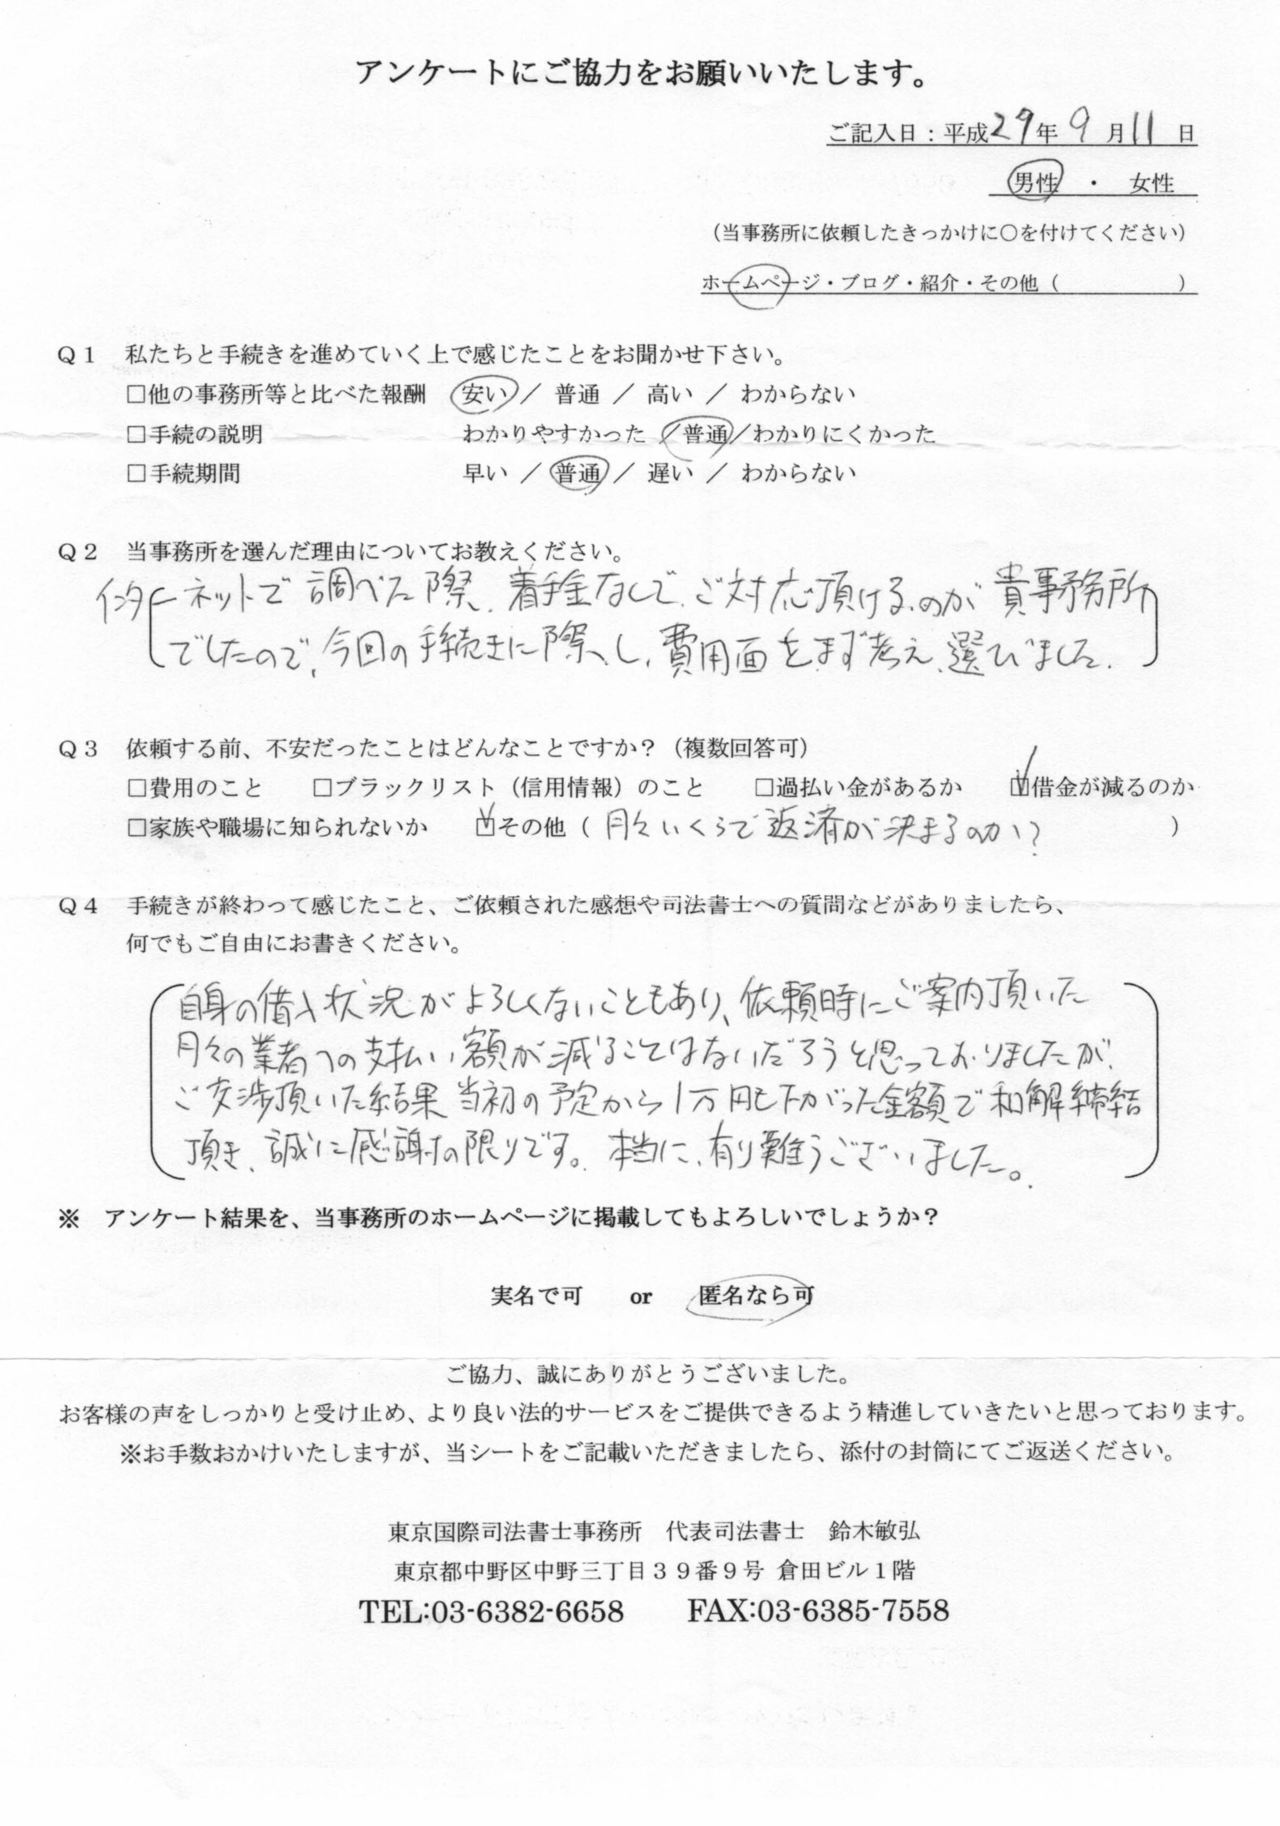 アンケートにご協力をお願いいたします。
ご記入日：平成29年9月11日
男性 ・ 女性
（当事務所に依頼したきっかけに○を付けてください）
ホームページ・ブログ・紹介・その他（　　　　　）
Ｑ１　私たちと手続きを進めていく上で感じたことをお聞かせ下さい。
□他の事務所等と比べた報酬　安い ／ 普通 ／ 高い ／ わからない
□手続の説明　わかりやすかった ／ 普通 ／ わかりにくかった
□手続期間　早い ／ 普通 ／ 遅い ／ わからない
Ｑ２　当事務所を選んだ理由についてお教えください。
インターネットで調べた際、着手金なしで、ご対応頂けるのが貴事務所
でしたので、今回の手続きに際し、費用面をまず考え、選びました。
Ｑ３　依頼する前、不安だったことはどんなことですか？（複数回答可）
□費用のこと　□ブラックリスト（信用情報）のこと　□過払い金があるか　☑借金が減るのか
□家族や職場に知られないか　☑その他（月々いくらで返済が決まるのか？　）
Ｑ４　手続きが終わって感じたこと、ご依頼された感想や司法書士への質問などがありましたら、
何でもご自由にお書きください。
自身の借入状況がよろしくないこともあり、依頼時にご案内頂いた
月々の業者への支払い額が減ることはないだろうと思っておりましたが、
ご交渉頂いた結果 当初の予定から1万円も下がった金額で和解締結
頂き、誠に感謝の限りです。本当に、有り難うございました。
※　アンケート結果を、当事務所のホームページに掲載してもよろしいでしょうか？
実名で可　or　匿名なら可
ご協力、誠にありがとうございました。
お客様の声をしっかりと受け止め、より良い法的サービスをご提供できるよう精進していきたいと思っております。
※お手数おかけいたしますが、当シートをご記載いただきましたら、添付の封筒にてご返送ください。
東京国際司法書士事務所　代表司法書士　鈴木敏弘
東京都中野区中野三丁目３９番９号 倉田ビル１階
TEL:03-6382-6658　FAX:03-6385-7558